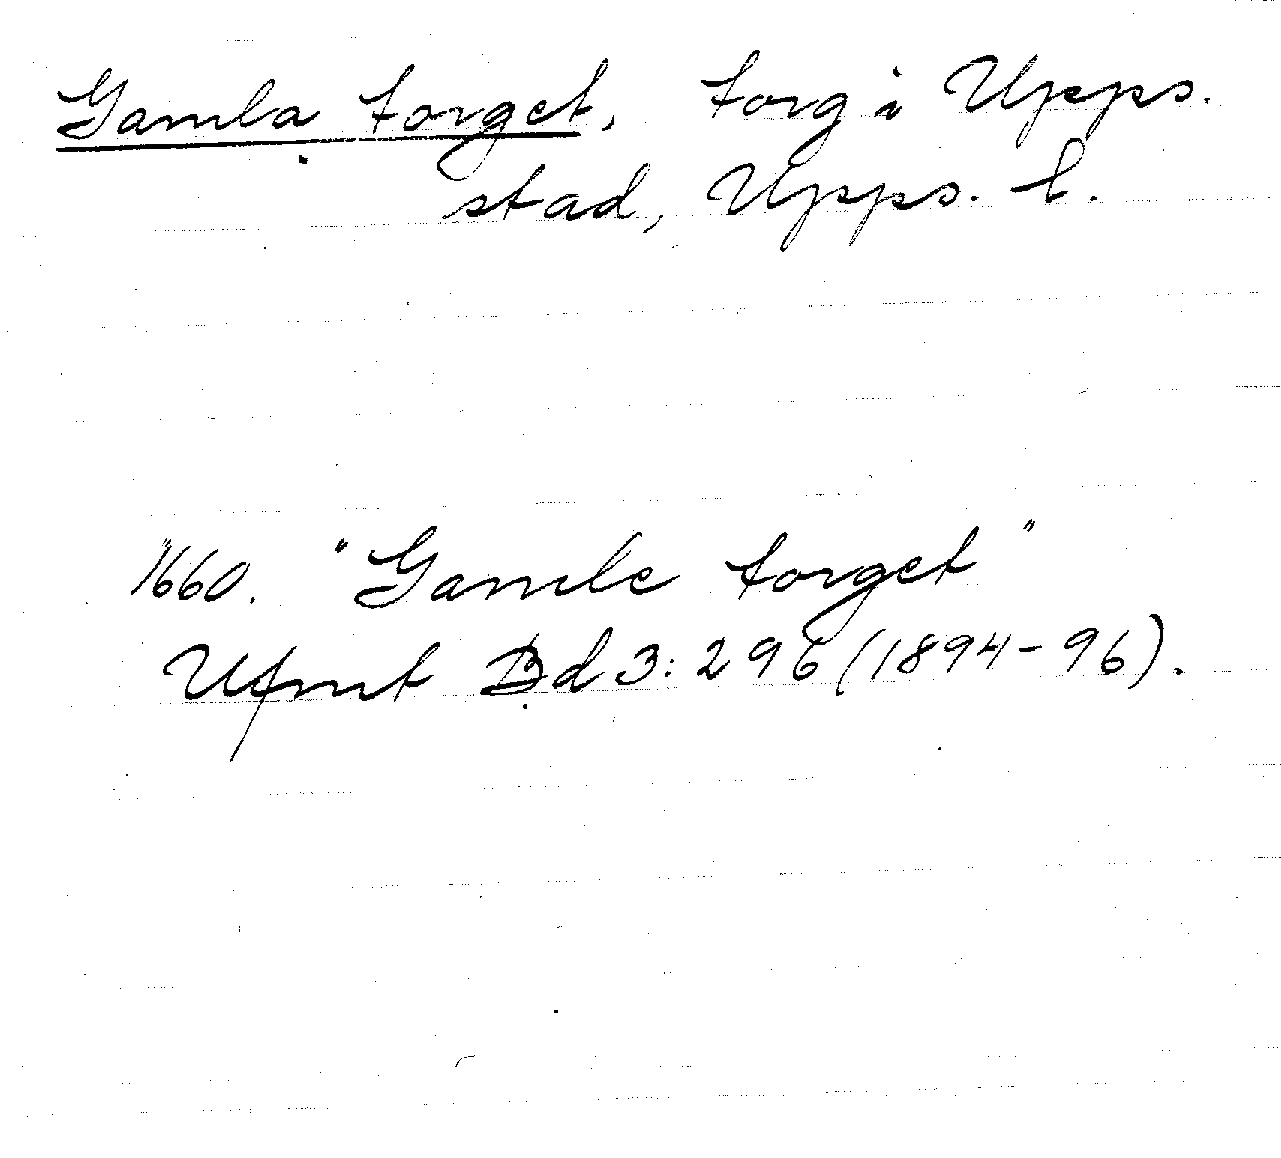 Gamla torget, torg i Upps.
stad, Upps. l.
1660. "Gamle torget"
Ufmt Bd 3:296 (1894-96).